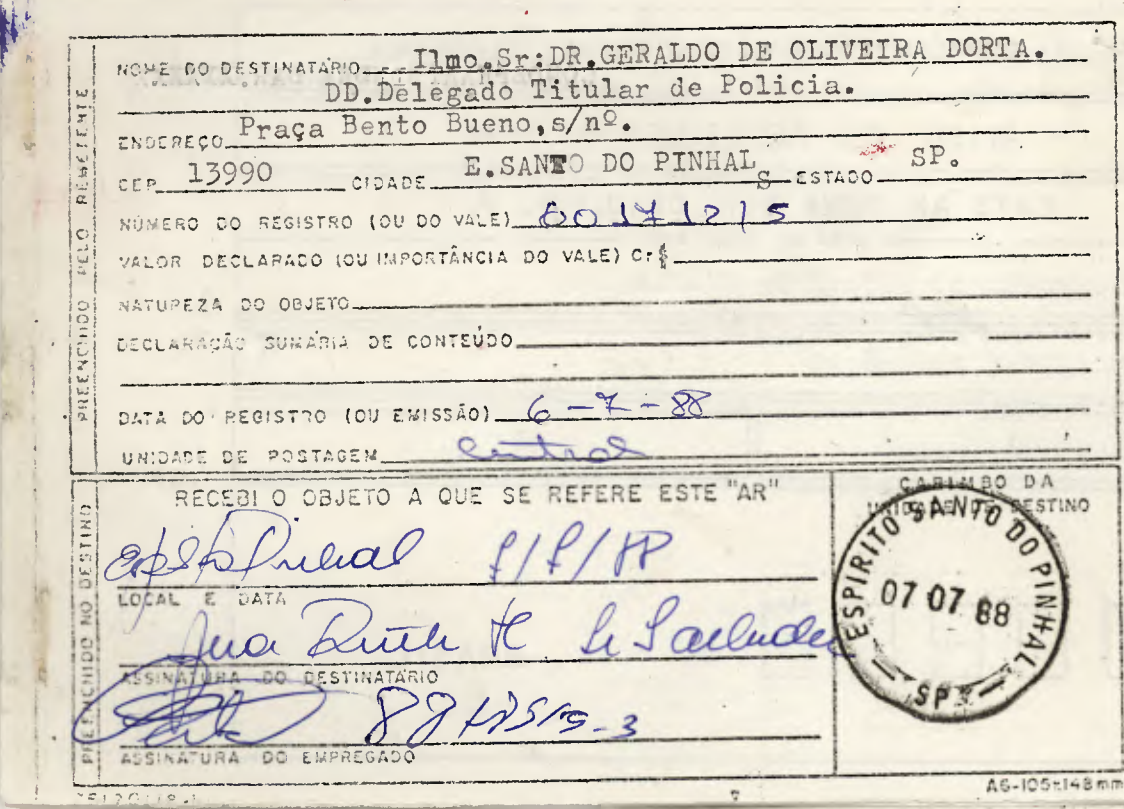 NOME DO DESTINATÁRIO Ilmo.Sr:DR.GERALDO DE OLIVEIRA DORTA.
DD.Delegado Titular de Policia.
ENDEREÇO Praça Bento Bueno,s/nº.
CEP 13990 CIDADE E.SANTO DO PINHAL S ESTADO SP.
NÚMERO DO REGISTRO (OU DO VALE) 00171215
VALOR DECLARADO (OU IMPORTÂNCIA DO VALE) Cr$
NATUREZA DO OBJETO
DECLARAÇÃO SUMÁRIA DE CONTEÚDO
DATA DO REGISTRO (OU EMISSÃO) 6-7-88
UNIDADE DE POSTAGEM Central
PREENCHIDO PELO REMETENTE
RECEBI O OBJETO A QUE SE REFERE ESTE "AR"
Pinhal
LOCAL E DATA
Ruth
ASSINATURA DO DESTINATÁRIO
ASSINATURA DO EMPREGADO
PREENCHIDO NO DESTINO
CARIMBO DA
UNIDADE DE DESTINO
ESPIRITO SANTO DO PINHAL
07 07 88
SP
A6-105x148mm